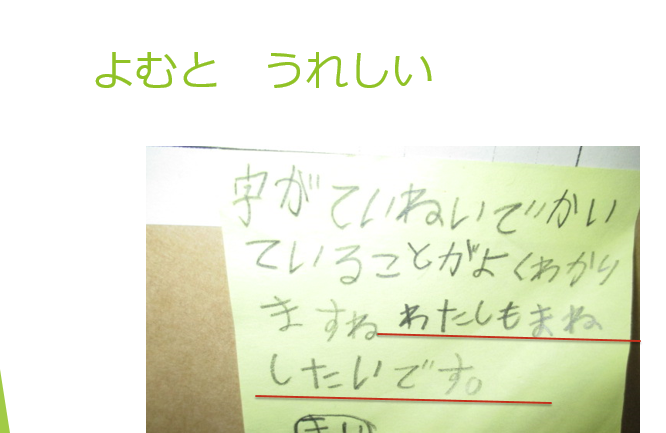 よむと　うれしい
字がていねいでかい
ていることがよくわかり
ますねわたしもまね
したいです。